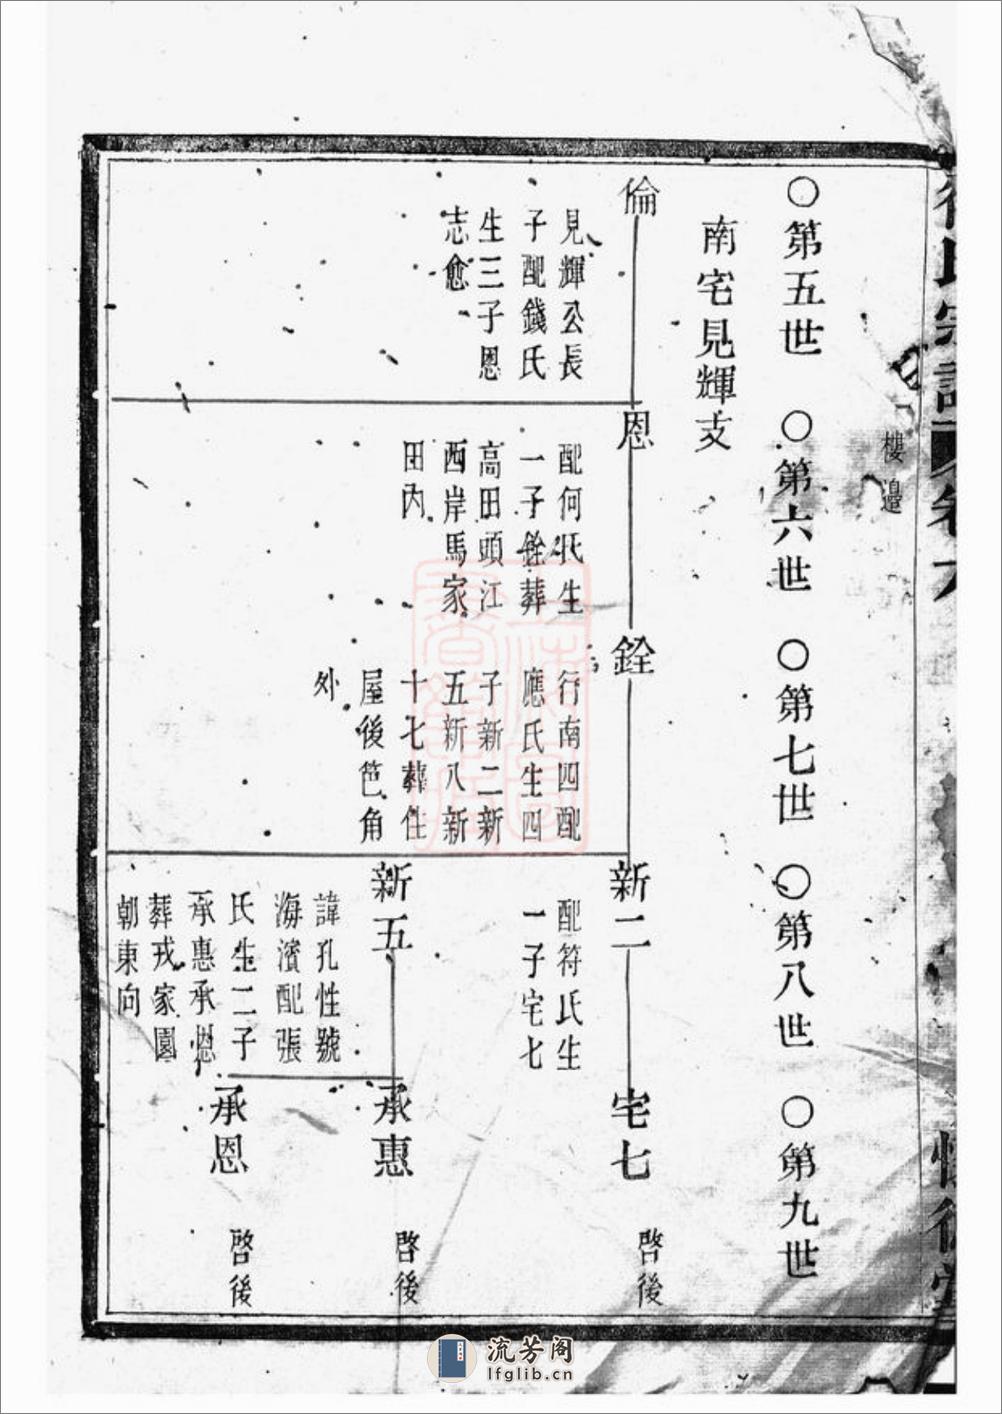 樓邉
○第五世　○第六世　○第七世　○第八世　○第九世
南宅見輝支
倫
見輝公長
子配錢氏
生三子恩
志愈
恩
配何氏生
一子銓葬
高田頭江
西岸馬家
田內
銓
行南四配
應氏生四
子新二新
五新八新
十七葬住
屋後笆角
外
新二
配符氏生
一子宅七
宅七
啓後
新五
諱孔性號
海濱配張
氏生二子
承惠承恩
葬戎家園
朝東向
承惠
啓後
承恩
啓後
流芳阁
lfglib.cn